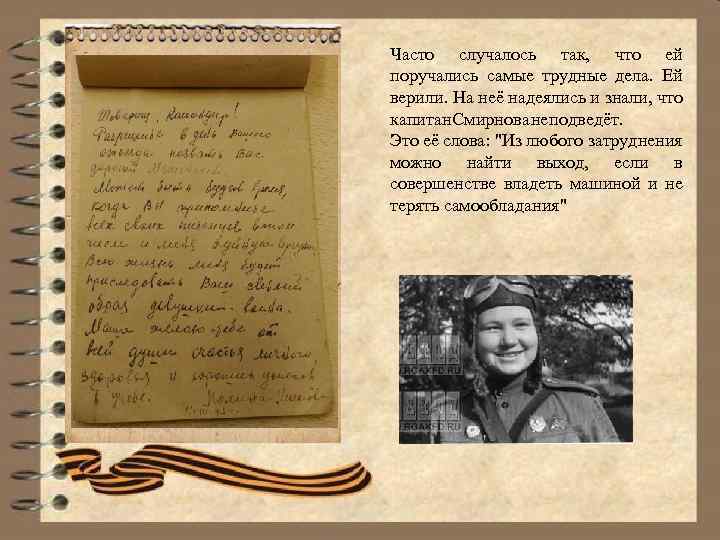 Товарищ Командир!
Разрешите в день Вашего
назвать Вас
дорогой
Может быть будет время,
когда Вы припомните
всех своих питомцев, в том
числе и меня
Всю жизнь меня будет
преследовать Ваш светлый
образ девушки воина.
Маша желаю тебе от
всей души счастья личного,
здоровья и успехов
в учебе. Полина
Часто случалось так, что ей
поручались самые трудные дела. Ей
верили. На неё надеялись и знали, что
капитан.Смирнованеподведёт.
Это её слова: "Из любого затруднения
можно найти выход, если в
совершенстве владеть машиной и не
терять самообладания"
RGAKFD.RU
RGAKFD.RU